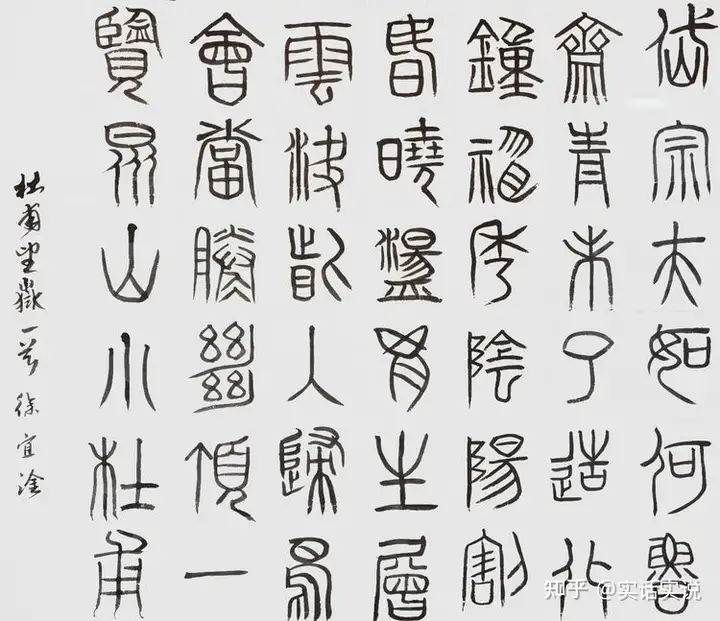 岱宗夫如何
齊青未了造化
鐘神秀陰陽割
昏曉盪胸生層
雲決眥入歸鳥
會當凌絕頂一
覽眾山小杜甫
杜甫望嶽一首 徐宜淦
知乎 @实话实说